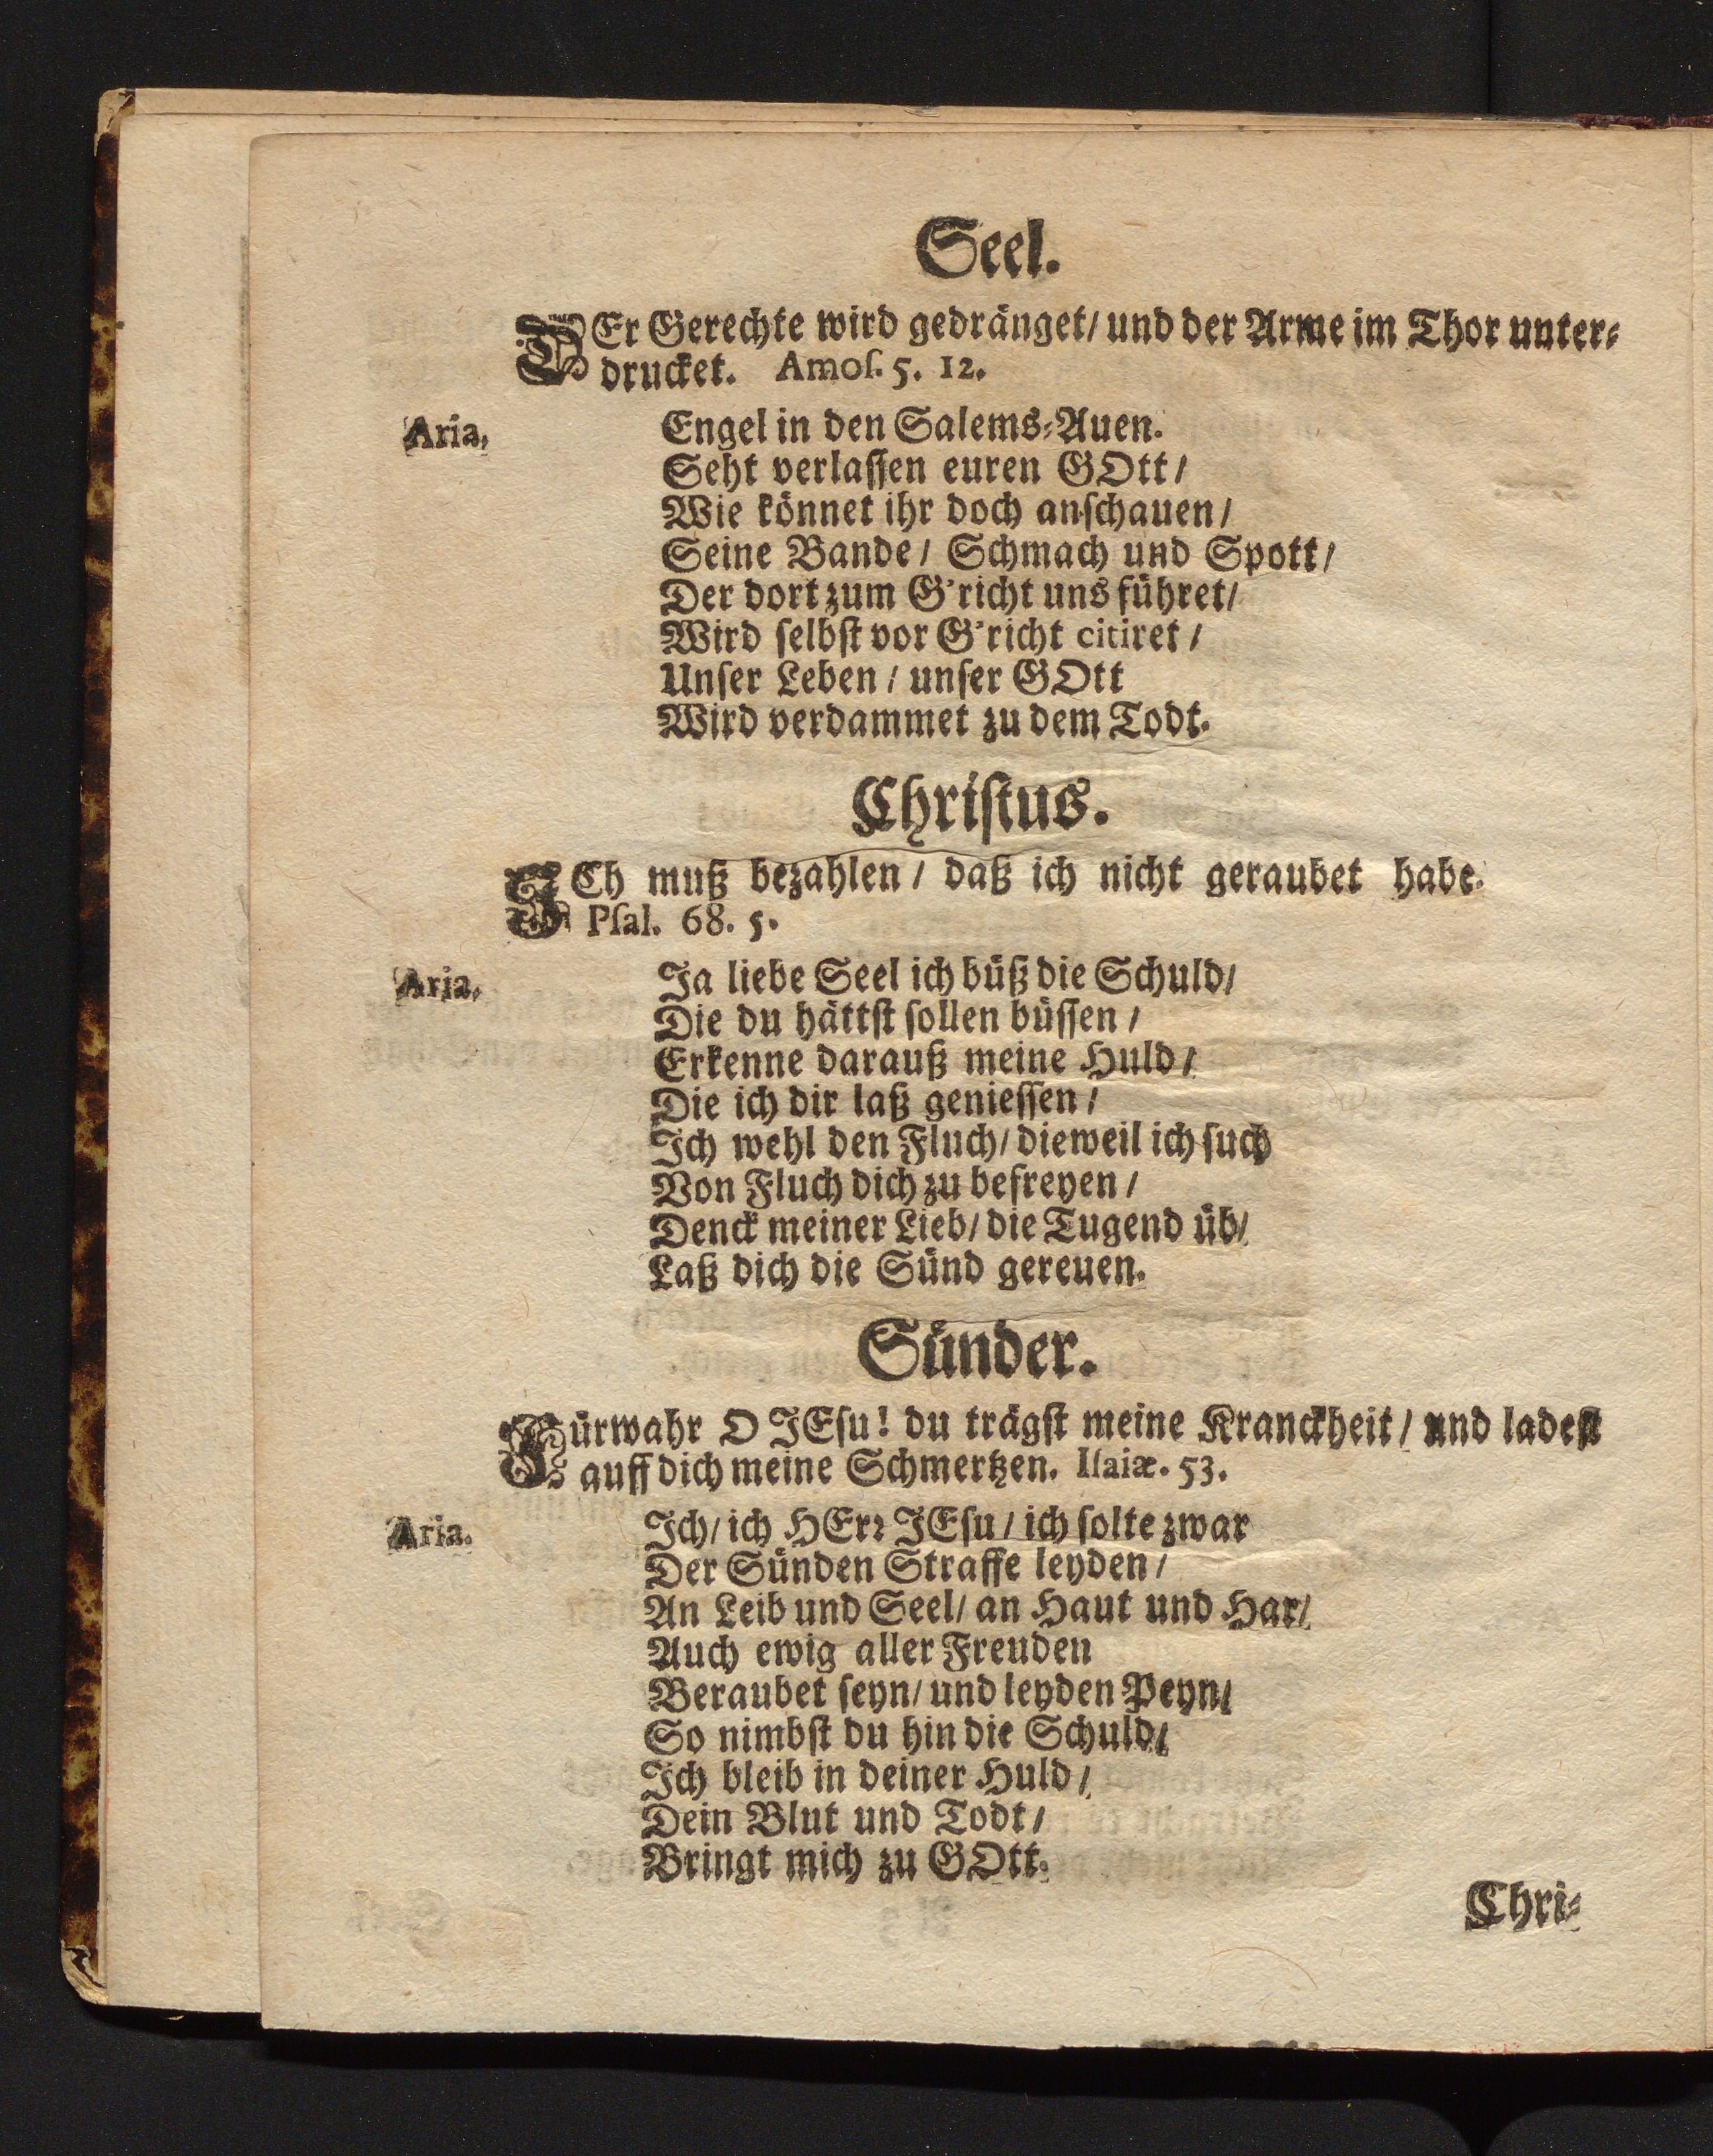 Seel.
DEr Gerechte wird gedränget/ und der Arme im Thor unter-
drucket. Amoſ. 5. 12.
Aria, Engel in den Salems-Auen.
Seht verlaſſen euren GOtt/
Wie könnet ihr doch anſchauen/
Seine Bande/ Schmach und Spott/
Der dort zum G'richt uns führet/
Wird ſelbſt vor G'richt citiret/
Unſer Leben/ unſer GOtt
Wird verdammet zu dem Todt.
Chriſtus.
ICh muß bezahlen/ daß ich nicht geraubet habe.
Pſal. 68. 5.
Aria. Ja liebe Seel ich büß die Schuld/
Die du hättſt ſollen büſſen/
Erkenne darauß meine Huld/
Die ich dir laß genieſſen/
Ich wehl den Fluch/ dieweil ich ſuch
Von Fluch dich zu befreyen/
Denck meiner Lieb/ die Tugend üb/
Laß dich die Sünd gereuen.
Sünder.
Fürwahr O JEſu! du trägſt meine Kranckheit/ und ladeſt
auff dich meine Schmertzen. Iſaiæ. 53.
Aria. Ich/ ich HErꝛ JEſu/ ich ſolte zwar
Der Sünden Straffe leyden/
An Leib und Seel/ an Haut und Har/
Auch ewig aller Freuden
Beraubet ſeyn/ und leyden Peyn/
So nimbſt du hin die Schuld/
Ich bleib in deiner Huld/
Dein Blut und Todt/
Bringt mich zu GOtt.
Chri-